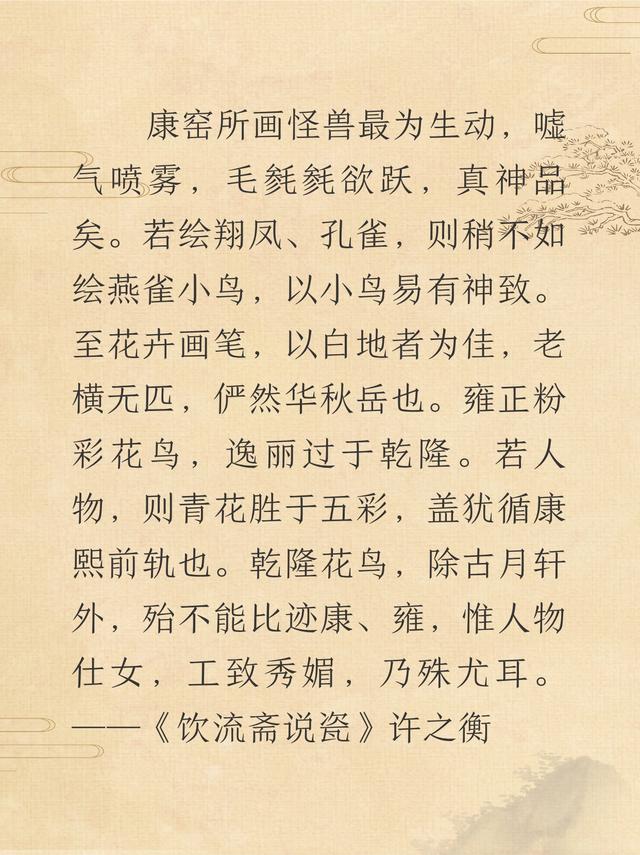 康窑所画怪兽最为生动，嘘
气喷雾，毛毵毵欲跃，真神品
矣。若绘翔凤、孔雀，则稍不如
绘燕雀小鸟，以小鸟易有神致。
至花卉画笔，以白地者为佳，老
横无匹，俨然华秋岳也。雍正粉
彩花鸟，逸丽过于乾隆。若人
物，则青花胜于五彩，盖犹循康
熙前轨也。乾隆花鸟，除古月轩
外，殆不能比迹康、雍，惟人物
仕女，工致秀媚，乃殊尤耳。
——《饮流斋说瓷》许之衡